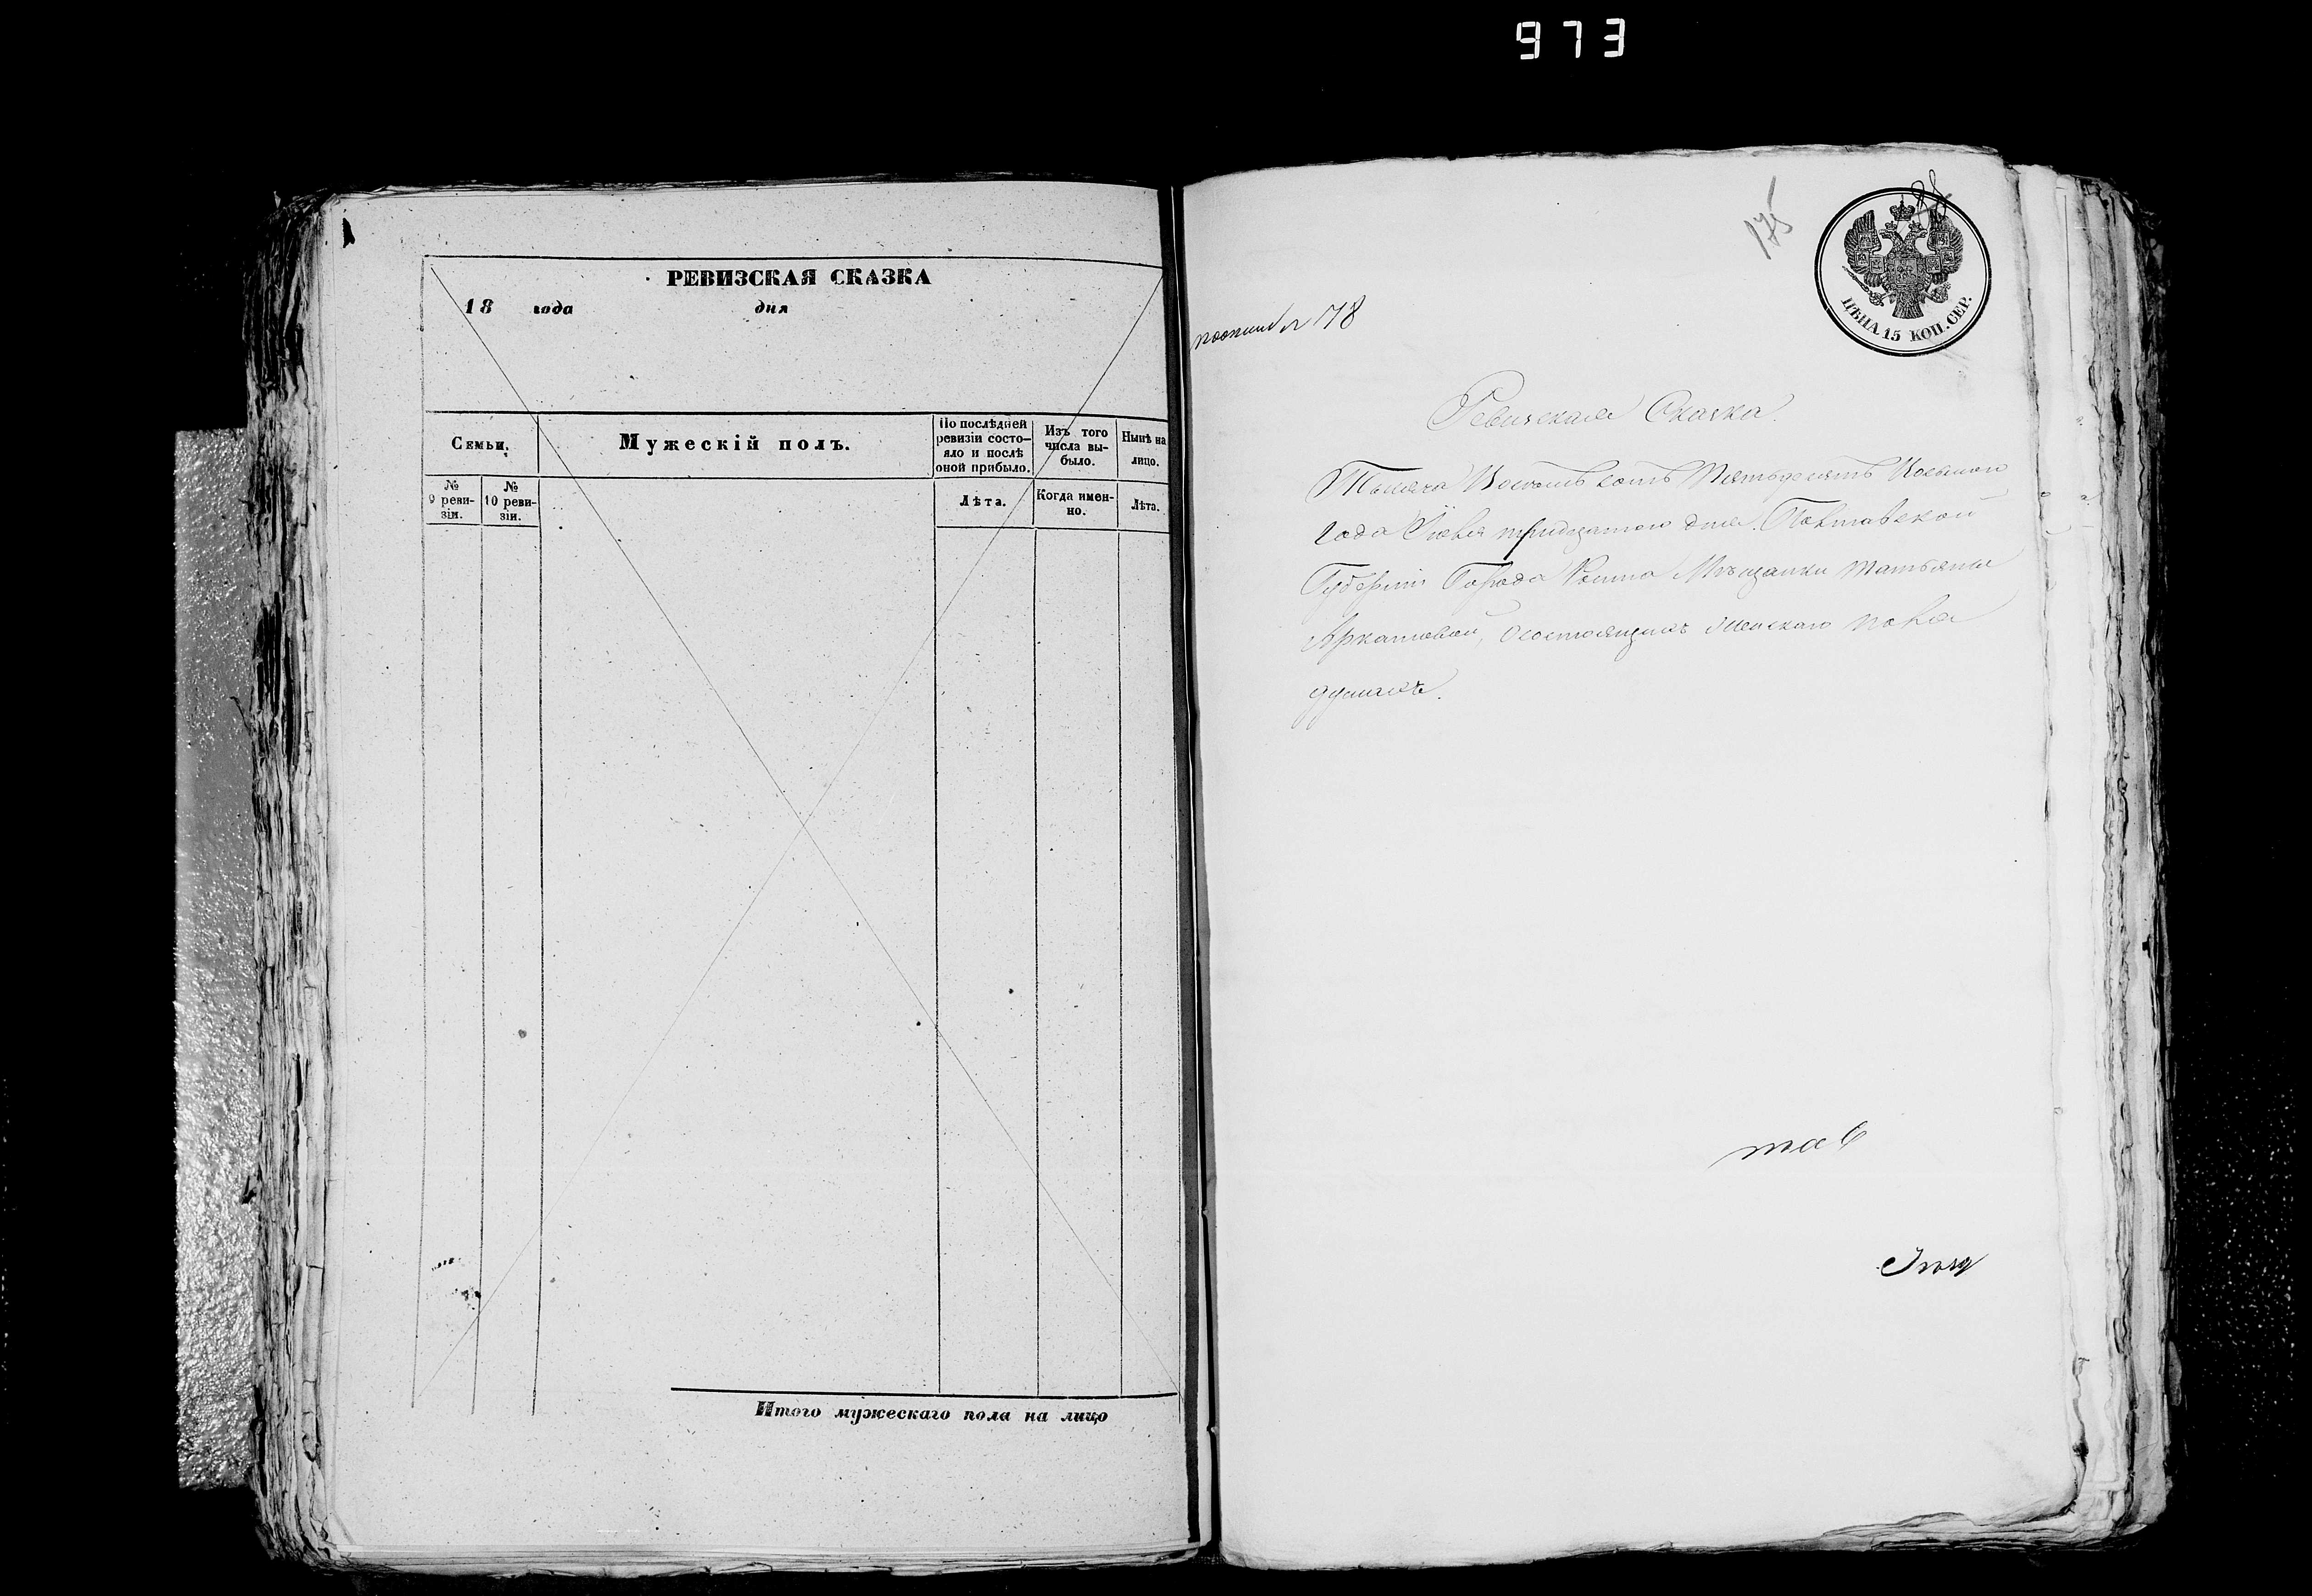 973
РЕВИЗСКАЯ СКАЗКА
18 года дня
Семьи.
Мужескій полъ.
По послѣдней ревизіи состо-
яло и послѣ
оной прибыло.
Изъ того
числа вы-
было.
Нынѣ на
лицо.
№
9 реви-
зіи.
№
10 реви-
зіи.
Лѣта.
Когда имен-
но.
Лѣта.
Итого мужескаго пола на лицо
175
ЦѢНА 15 КОП. СЕР.
178
Ревизская Сказка.
Тысяча Восемь сотъ Пятьдесятъ Восьмого
года Іюня тридцатого дня. Полтавской
Губерніи Города Мѣщанки Татьяны
состоящихъ женскаго пола
душахъ.